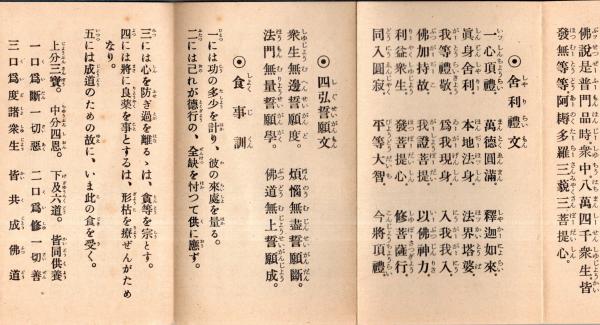 佛說是普門品時衆中。八萬四千衆生。皆
發無等等阿耨多羅三藐三菩提心。
◉舍利禮文
一心頂禮。 萬德圓滿。 釋迦如來。
眞身舍利。 本地法身。 法界塔婆。
我等禮敬。 爲我現身。 入我我入。
佛加持故。 我證菩提。 以佛神力。
利益衆生。 發菩提心。 修菩薩行。
同入圓寂。 平等大智。 今將頂禮。
◉四弘誓願文
衆生無邊誓願度。 煩惱無盡誓願斷。
法門無量誓願學。 佛道無上誓願成。
◉食事訓
一には功の多少を計り、彼の來處を量る。
二には己れが德行の、全缺を忖つて供に應ず。
三には心を防ぎ過を離るゝは、貪等を宗とす。
四には將に良藥を事とするは、形枯を療ぜんがため
なり。
五には成道のための故に、いま此の食を受く。
上分三寶。 中分四恩。 下及六道。 皆同供養
一口爲斷一切惡 二口爲修一切善
三口爲度諸衆生 皆共成佛道